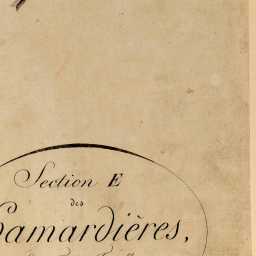 Section E
des
amardières,